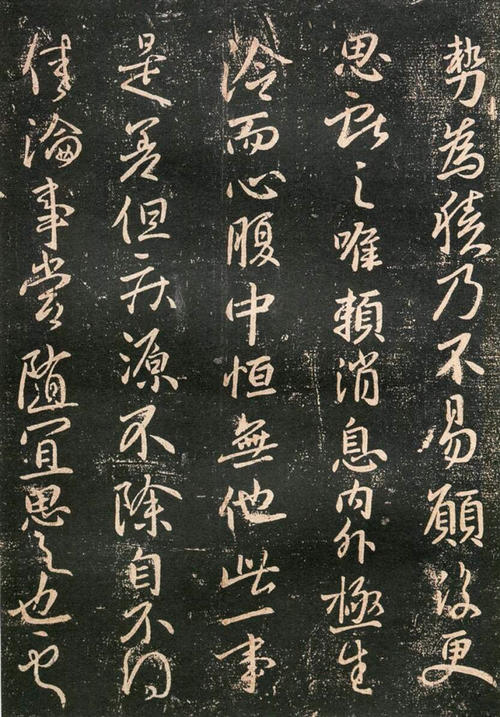 勢為積乃不易願復更
思獻之唯賴消息內外極生
冷而心腹中恒無他此一事
是善但疾源不除自不得
佳淪事當隨宜思之也